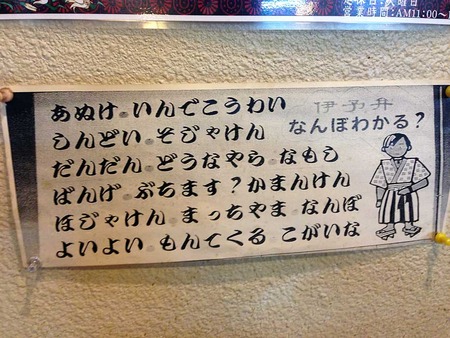 定休日:火曜日
営業時間:AM11:00~
伊予弁
なんぼわかる?
あぬけ。いんでこうわい
しんどい。そじゃけん
だんだん。どうなやら。なもし
ばんげ。ぶちます?かまんけん
ほじゃけん。まっちゃま。なんぼ
よいよい。もんてくる。こがいな